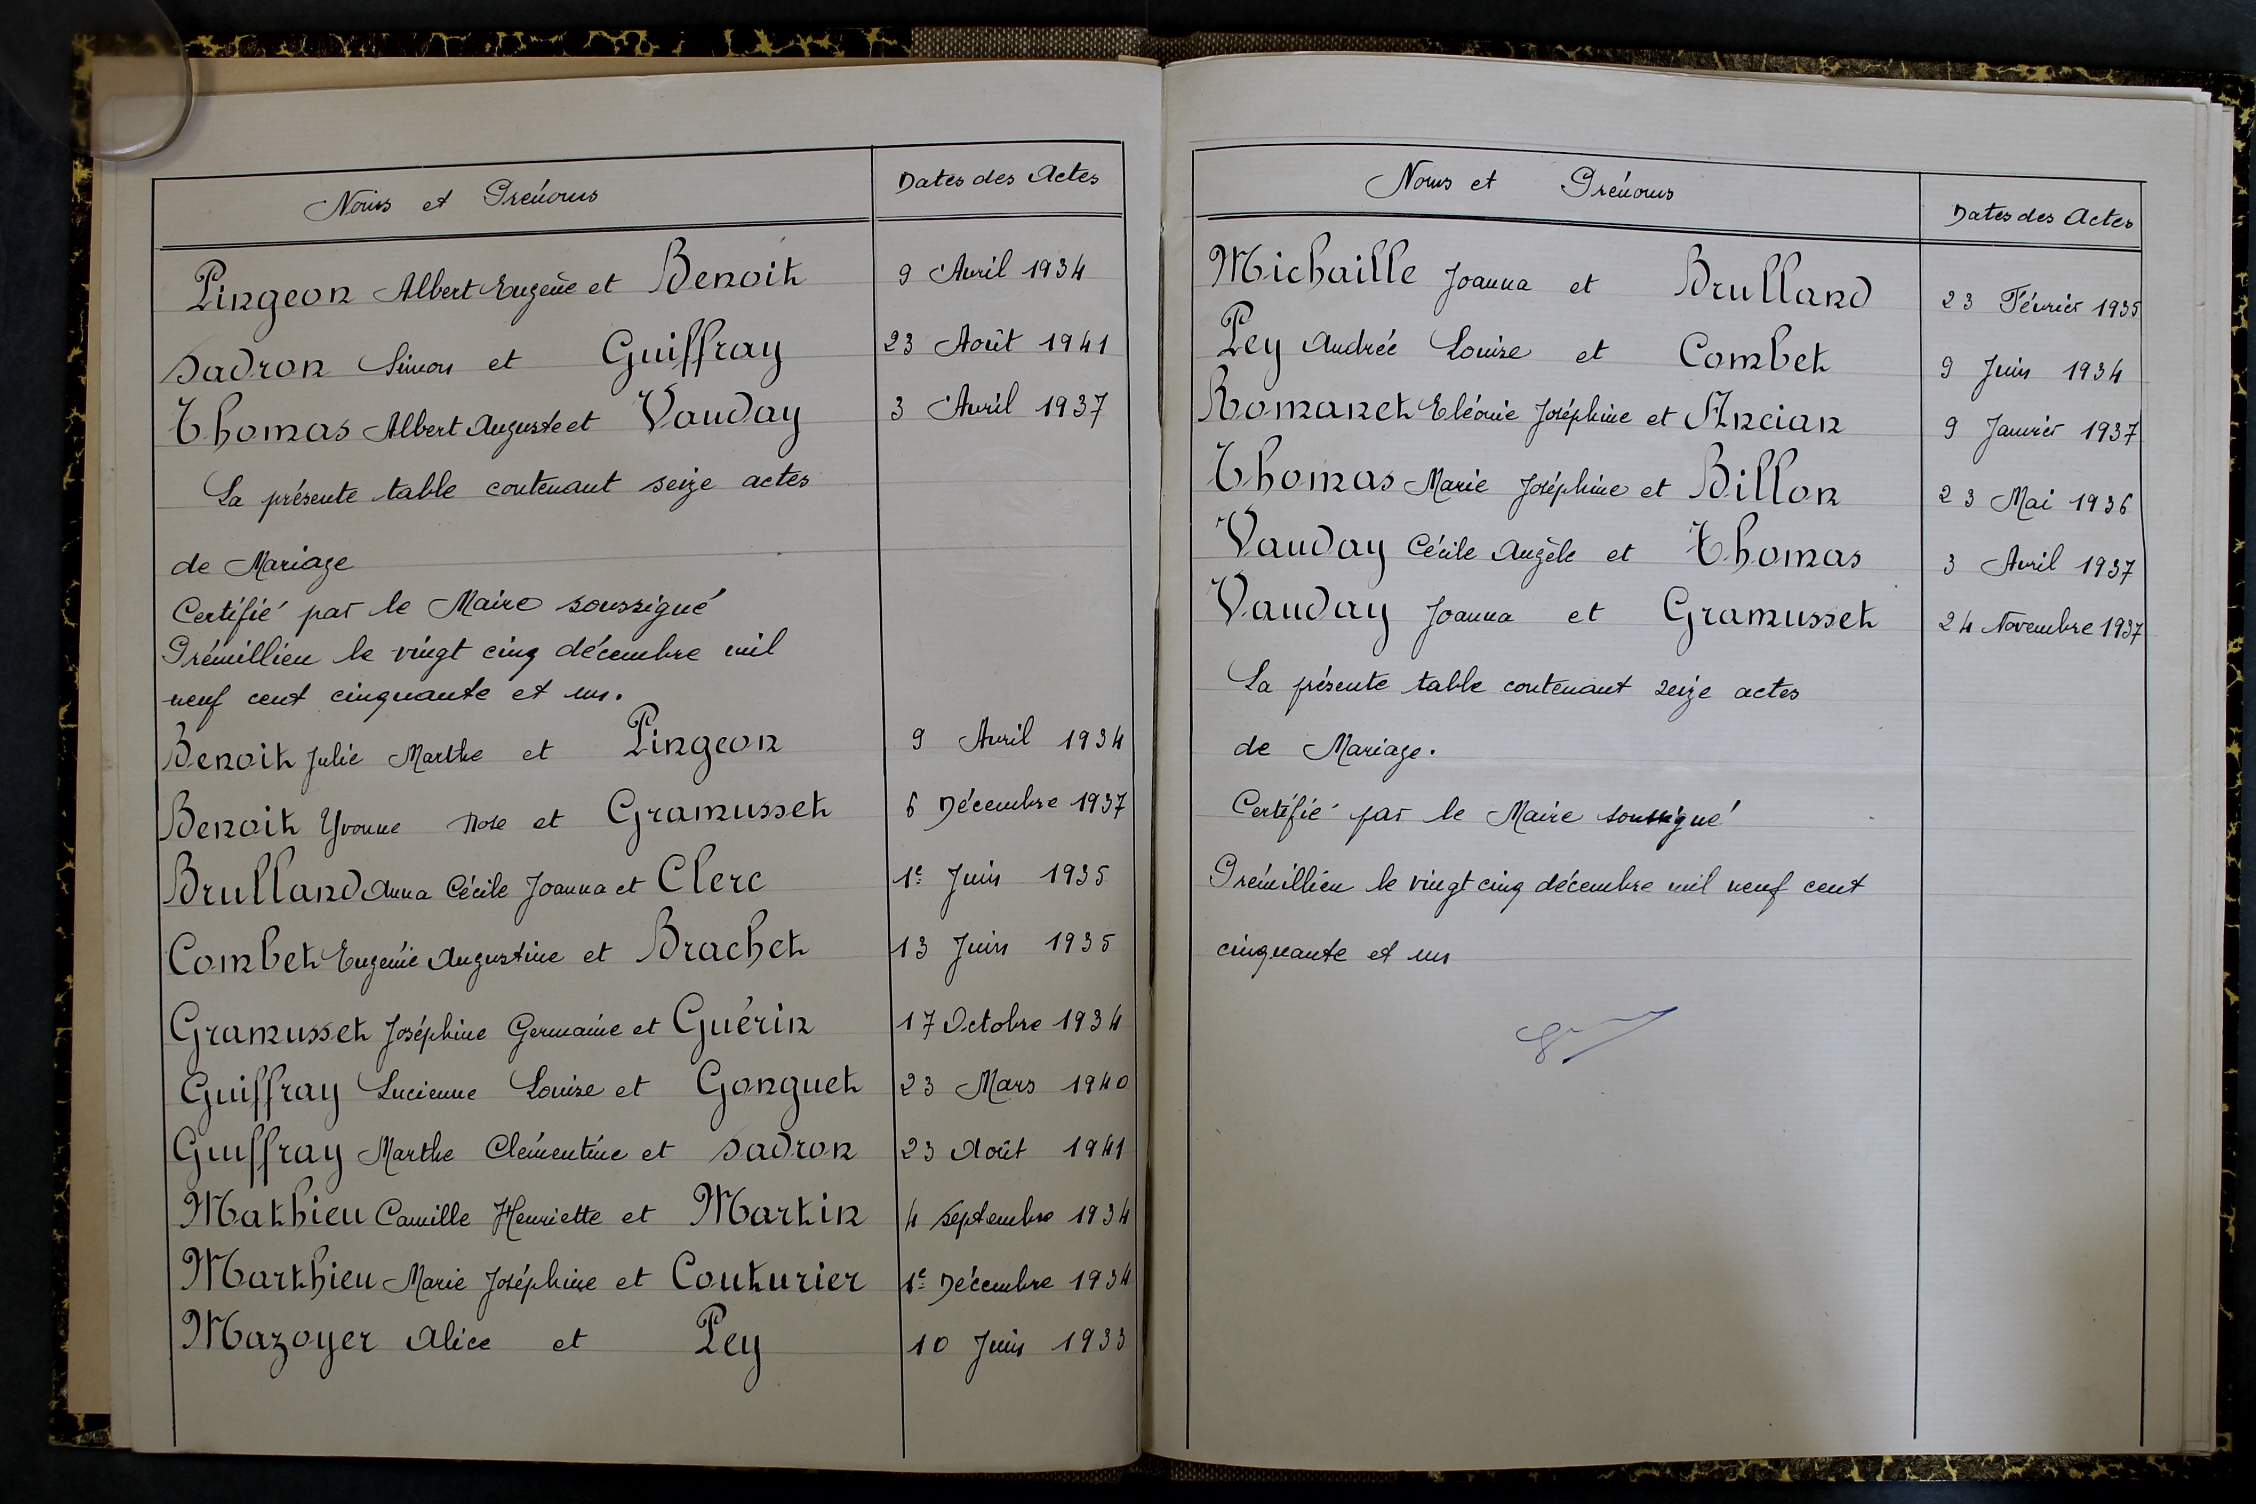 Noms et Prénoms
Dates des Actes
Pingeon Albert Eugène et Benoit 9 Avril 1934
Sadron Simon et Guiffray 23 Août 1941
Thomas Albert Auguste et Vauday 3 Avril 1937
La présente table contenant seize actes
de Mariage
Certifié par le Maire soussigné
Prémillieu le vingt cinq décembre mil
neuf cent cinquante et un.
Benoit Julie Marthe et Pingeon 9 Avril 1934
Benoit Yvonne Rose et Gramusset 6 Décembre 1937
Brulland Anna Cécile Joanna et Clerc 1e Juin 1935
Combet Eugénie Augustine et Brachet 13 Juin 1935
Gramusset Joséphine Germaine et Guérin 17 Octobre 1934
Guiffray Lucienne Louise et Gonguet 23 Mars 1940
Guiffray Marthe Clémentine et Sadron 23 Août 1941
Mathieu Camille Henriette et Martin 4 Septembre 1934
Marthieu Marie Joséphine et Couturier 1e Décembre 1934
Mazoyer Alice et Pey 10 Juin 1933
Noms et Prénoms
Dates des Actes
Michaille Joanna et Brulland 23 Février 1935
Pey Andrée Louise et Combet 9 Juin 1934
Romanet Eléonie Joséphine et Ancian 9 Janvier 1937
Thomas Marie Joséphine et Billon 23 Mai 1936
Vauday Cécile Angèle et Thomas 3 Avril 1937
Vauday Joanna et Gramusset 24 Novembre 1937
La présente table contenant seize actes
de Mariage.
Certifié par le Maire soussigné
Prémillieu le vingt cinq décembre mil neuf cent
cinquante et un